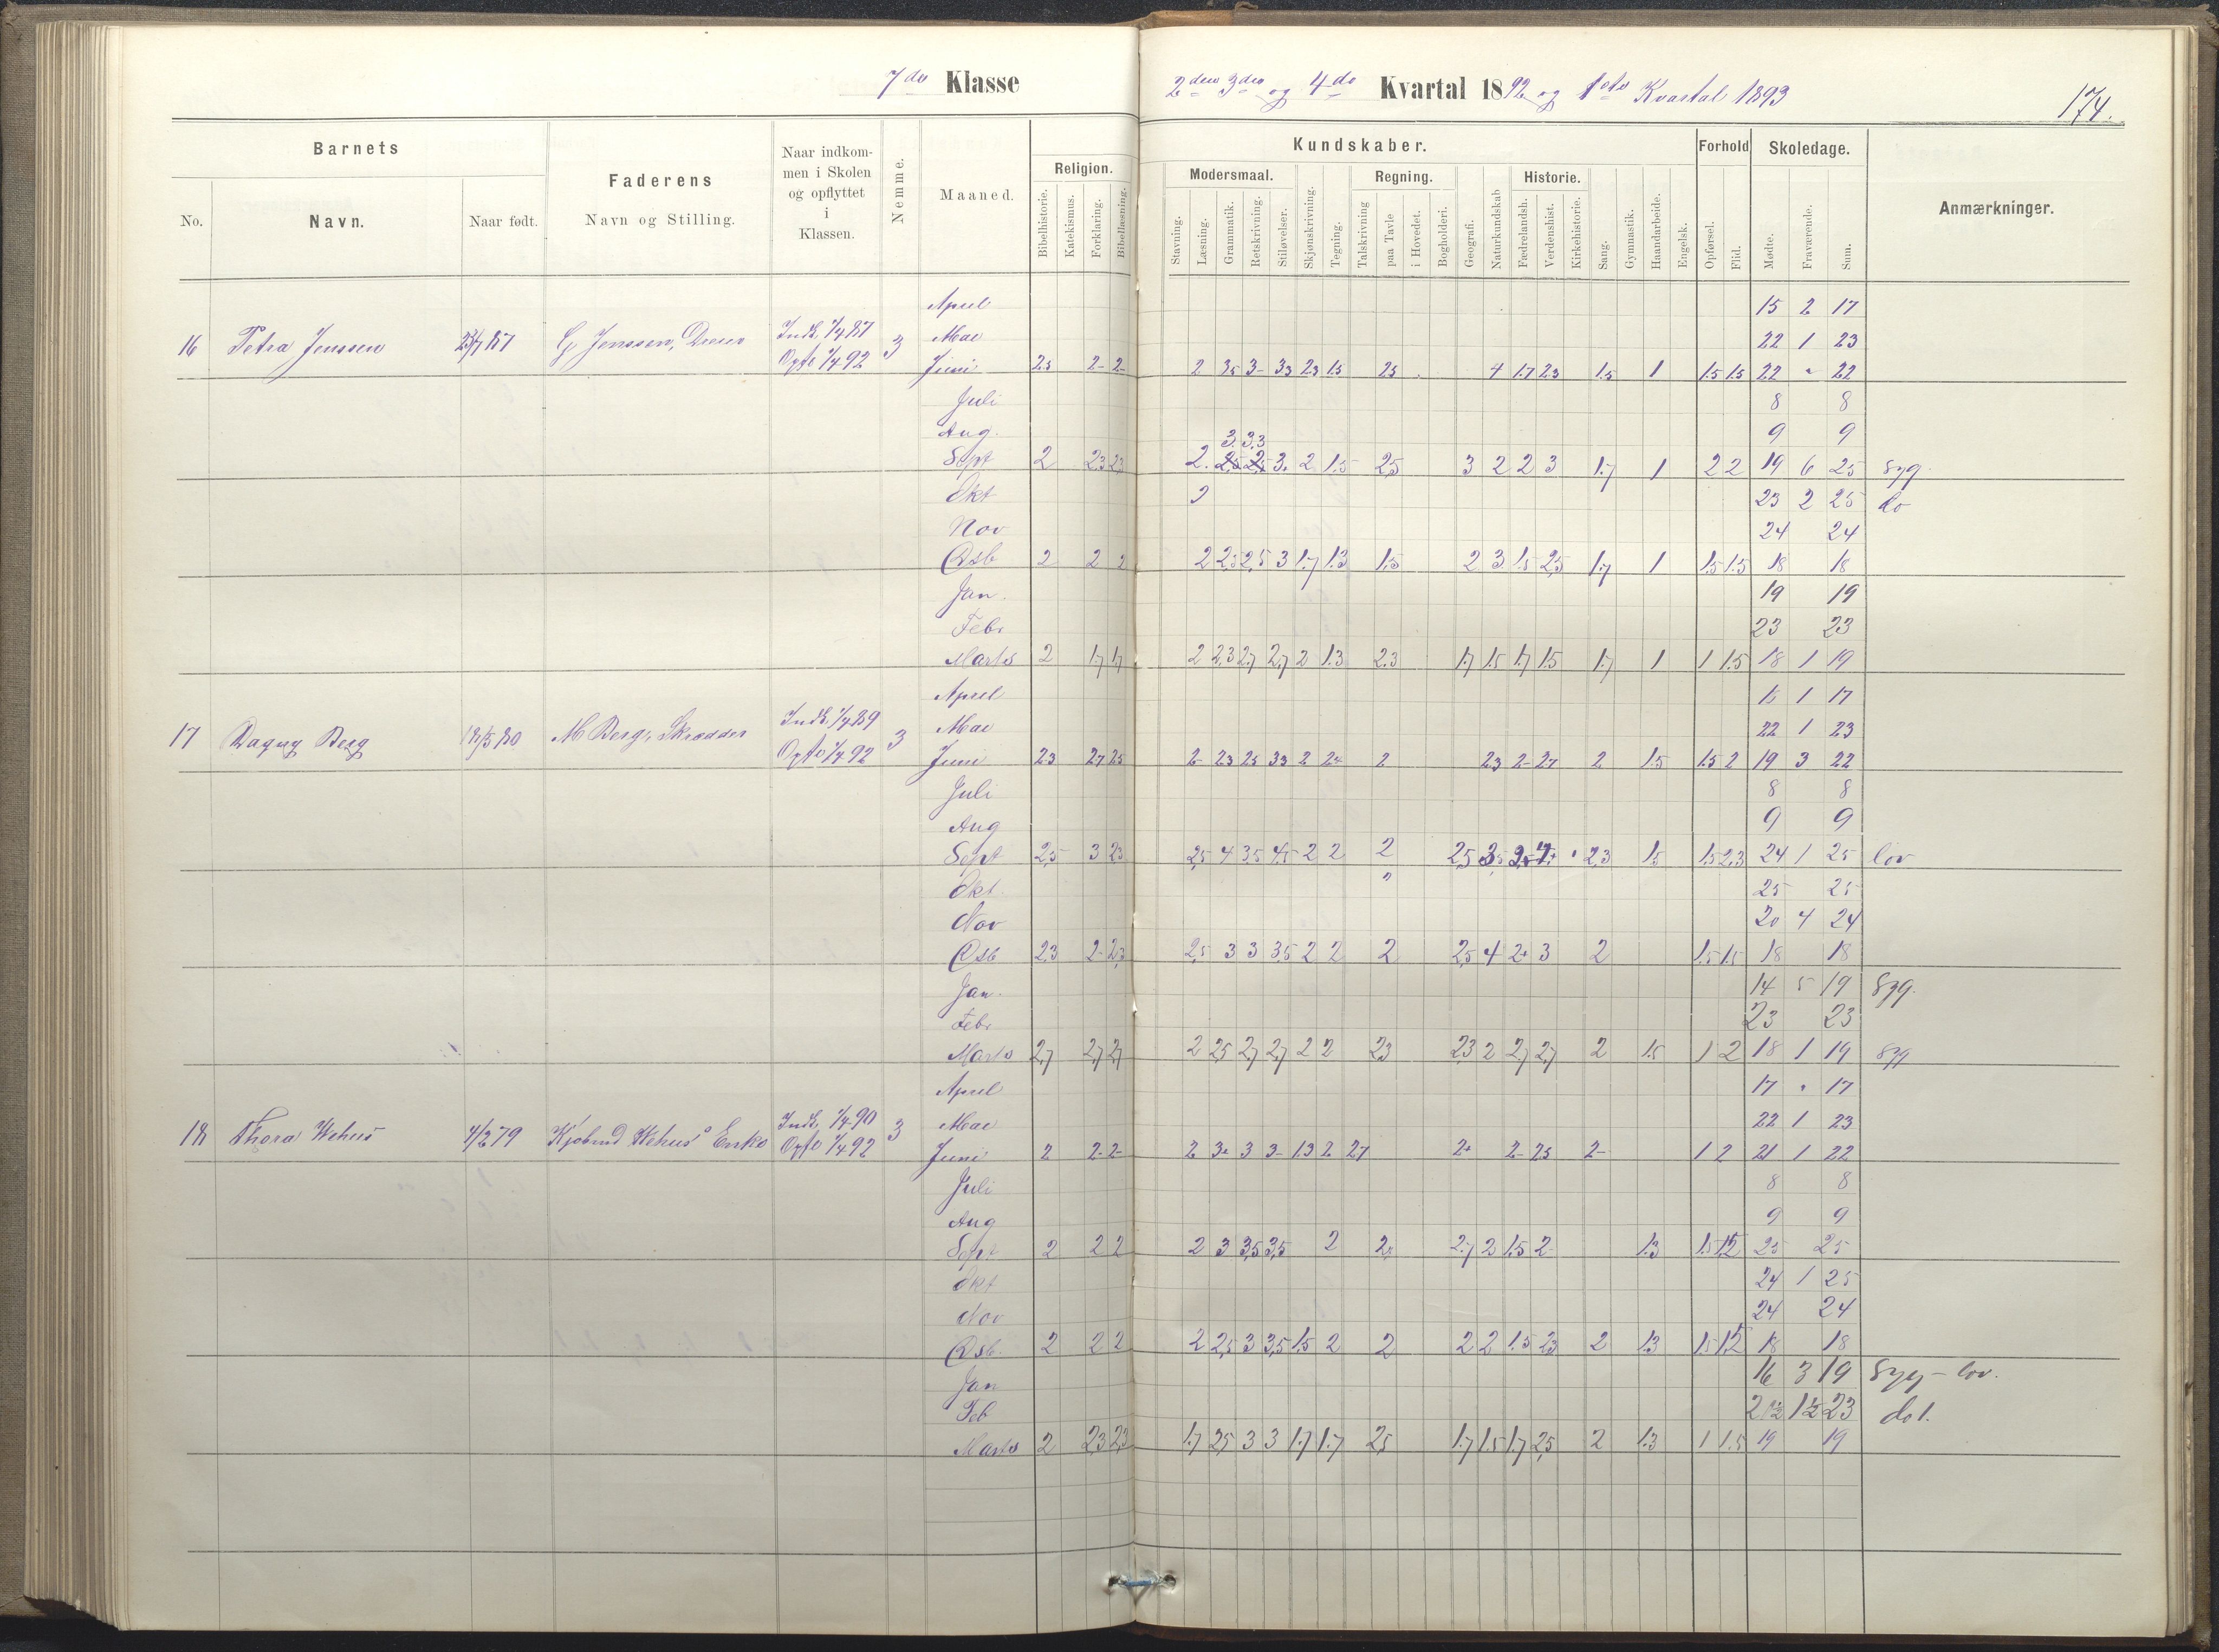 7de Klasse
2den 3die og 4de Kvartal 1892 og 1ste Kvartal 1893
174.
Barnets
Faderens
Naar indkommen i Skolen og opflyttet i Klassen.
Nemme.
Maaned.
Religion.
Kundskaber.
Modersmaal.
Regning.
Historie.
Forhold
Skoledage.
Anmærkninger.
No.
Navn.
Naar født.
Navn og Stilling.
Bibelhistorie.
Katekismus.
Forklaring.
Bibellæsning.
Stavning.
Læsning.
Grammatik.
Retskrivning.
Stiløvelser.
Skjønskrivning.
Tegning.
Talskrivning
paa Tavle
i Hovedet.
Bogholderi.
Geografi.
Naturkundskab
Fædrelandsh.
Verdenshist.
Kirkehistorie.
Sang.
Gymnastik.
Haandarbeide.
Engelsk.
Opførsel.
Flid.
Mødte.
Fraværende.
Sum.
April 15 2 17
16 Petra Jenssen G Jenssen, Indk. 1/4 87 3 Mai 22 1 23
Opfl 1/4 92 Juni 2.5 2- 2- 2 3.5 3- 3.3 2.3 1.5 2.5 4 1.7 2.3 1.5 1 1.5 1.5 22 " 22
Juli 8 8
Aug. 9 9
3. 3.3
Sept 2 2.3 2.3 2. 2,5 2,5 3. 2 1.5 2,5 3 2 2 3 1.7 1 2 2 19 6 25 syg
Okt 2 23 2 25 do
Nov 24 24
Dsb 2 2 2 2 2,5 2,5 3 1.7 1.3 1.5 2 3 1.5 2,5 1.7 1 1.5 1.5 18 18
Jan. 19 19
Febr 23 23
Marts 2 1.7 1.7 2 2,3 2,7 2,7 2 1.3 2.3 1.7 1.5 1.7 1.5 1.7 1 1 1.5 18 1 19
April 16 1 17
17 Dagny Berg 18/5 80 M Berg, Skrædder Indk. 1/4 89 3 Mai 22 1 23
Opfl 1/4 92 Juni 2.3 2.7 2.5 2- 2.3 2.5 3.3 2 2+ 2 2.3 2- 2.7 2 1.5 1.5 2 19 3 22
Juli 8 8
Aug 9 9
Sept 2,5 3 2.3 2,5 4 3.5 4.5 2 2 2 2,5 2,3 1.5 1.5 2.3 24 1 25 lov
Okt. " 25 25
Nov 20 4 24
Dsb 2.3 2- 2,3 2,5 3 3 3.5 2 2 2 2,5 4 2+ 3 2 1.5 1.5 18 18
Jan. 14 5 19 syg.
Febr 23 23
Marts 2,7 2,7 2,7 2 2,5 2,7 2,7 2 2 2,3 2,3 2 2,7 2,7 2 1.5 1 2 18 1 19 syg
April 17 " 17
18 Thora Wehus 4/2 79 Wehus' Enke Indk. 1/4 90 3 Mai 22 1 23
Opfl 1/4 92 Juni 2 2- 2- 2 3+ 3 3- 1.3 2 2.7 2+ 2- 2.5 2- 1 2 21 1 22
Juli 8 8
Aug 9 9
Sept 2 2 2 2 3 3,5 3,5 2 2,7 2 1.5 2- 1.3 1.5 25 25
Okt 24 1 25
Nov 24 24
Dsb. 2 2 2 2 2,5 3 3,5 1.5 2 2 2 2 1.5 2.3 2 1.3 1.5 18 18
Jan 16 3 19 syg - lov.
Feb 21½ 1½ 23 do 1.
Marts 2 2,3 2,3 1.7 2,5 3 3 1.7 1.7 2,5 1.7 1.5 1.7 2,5 2 1.3 1 1.5 19 19